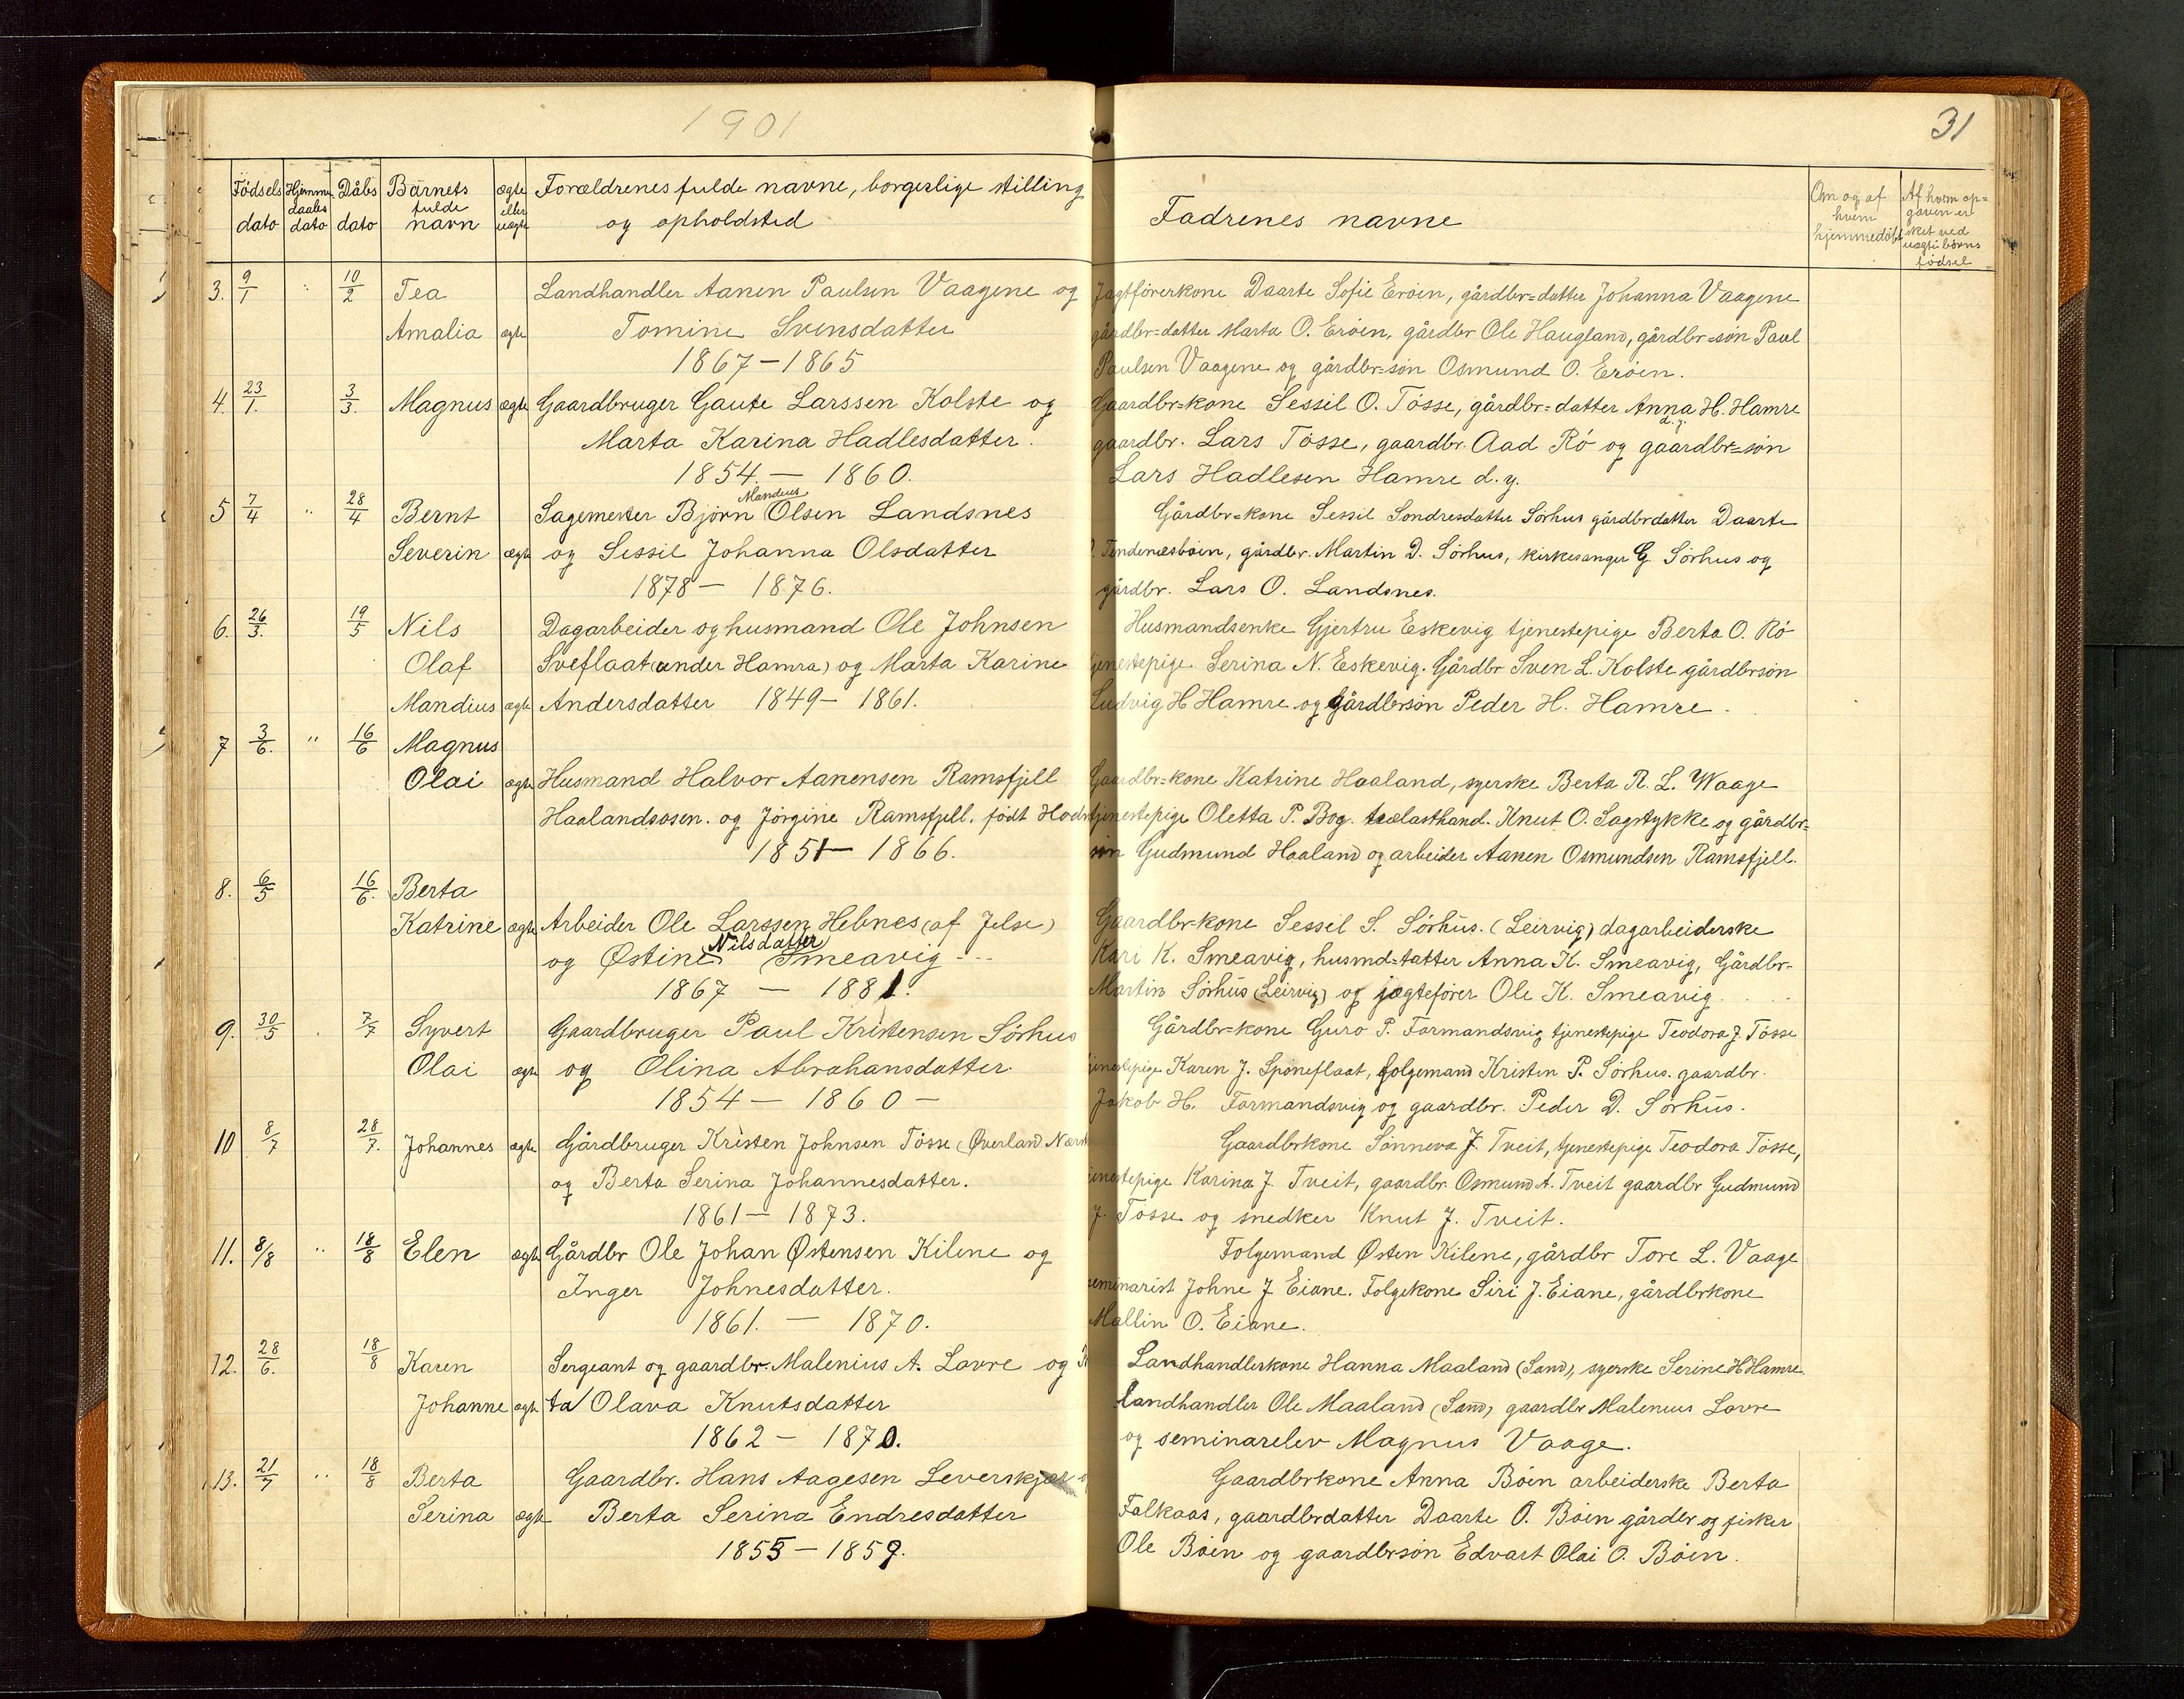 1901
31
Födsels dato
Hjemme daabs dato
Dåbs dato
Barnets fulde navn
ægte eller uægte
Forældrenes fulde navne, borgerlige stilling
og opholdsted
Fadrenes navne
Om og af hvem hjemmedöbt
Af hvem op=gaven er sket ved uægte börns födsel
3. 9/1 " 10/2 Tea Landhandler Aanen Paulsen Vaagene og
Amalia ægte Tomine Svensdatter
1867 - 1865
Jagtförerkone Daarte Sofie Eröen, gårdbr=datter Johanna Vaagene
gårdbr=datter Marta O. Eröen, gårdbr Ole Haugland, gårdbr=sön Paul
Paulsen Vaagene og gårdbr=sön Osmund O. Eröen.
4. 23/1. 3/3. Magnus ægte Gaardbruger Gaute Larssen Kolste og
Marta Karina Hadlesdatter.
1854 - 1860.
Gaardbr=kone Sessil O. Tösse, gårdbr=datter Anna H. Hamre
d.y.
gaardbr. Lars Tösse, gaardbr. Aad Rö og gaardbr=sön
Lars Hadlesen Hamre d.y.
5 7/4 " 28/4 Bernt Sagemester Björn Mandius Olsen Landsnes
Severin ægte og Sessil Johanna Olsdatter
1878 - 1876.
Gårdbr=kone Sessil Sondresdatter Sörhus gårdbrdatter Daarte
Tendenesböen, gårdbr. Martin D. Sörhus, kirkesanger G Sörhus og
gårdbr. Lars O. Landsnes.
6. 26/3. 19/5 Nils Dagarbeider og husmand Ole Johnsen
Olaf Sveflaat (under Hamra) og Marta Karine
Mandius ægte Andersdatter 1849 - 1861.
Husmandsenke Gjertru Eskevig tjenestepige Berta O. Rö
tjenestepige Serina N. Eskevig. Gårdbr Sven L. Kolste gårdbrsön
Ludvig H Hamre og gårdbrsön Peder H. Hamre.
7 3/6. " 16/6 Magnus
Olai ægte Husmand Halvor Aanensen Ramsfjell
Haalandsosen. og Jörgine Ramsfjell. födt
1851 - 1866.
Gaardbr=kone Katrine Haaland, syerske Berta R. L. Waage
tjenestepige Oletta P. Bog. trælasthand. Knut O. Sagstykke og gårdbr=
sön Gudmund Haaland og arbeider Aanen Osmundsen Ramsfjell.
8. 6/5 16/6. Berta
Katrine ægte Arbeider Ole Larssen Hebnes (af Jelse)
og Østine (Nilsdatter) Smeavig
1867 - 1881.
Gaardbr-kone Sessil S. Sörhus. (Leirvig) dagarbeiderske
Kari K. Smeavig, husmd=tatter Anna K. Smeavig, Gårdbr-
Martin Sörhus (Leirvig) og jægtefører Ole K. Smeavig.
9. 30/5 7/7 Syvert Gaardbruger Paul Kristensen Sörhus
Olai ægte og Olina Abrahansdatter
1854 - 1860 -
Gårdbr=kone Guro P. Formandsvig tjenestepige Teodora J. Tösse
tjenestepige Karen J. Sponeflaat, folgemand Kristen P. Sörhus. gaardbr.
Jakob H. Formandsvig og gaardbr. Peder D. Sörhus.
10 8/7 28/7. Johannes ægte Gårdbruger Kristen Johnsen Tösse (Øverland
og Berta Serina Johannesdatter.
1861 - 1873.
Gaardbrkone Sönneva J. Tveit, tjenestepige Teodora Tösse,
tjenestepige Karina J. Tveit, gaardbr Osmund A. Tveit gaardbr Gudmund
J. Tösse og snedker Knut J. Tveit.
11. 8/8 " 18/8 Elen ægte Gårdbr Ole Johan Østensen Kilene og
Inger Johnesdatter.
1861. - 1870.
Folgemand Østen Kilene, gårdbr Tore L. Vaage
seminarist Johne J Eiane. Folgekone Siri J. Eiane, gårdbrkone
Mallin O. Eiane.
12. 28/6. 18/8 Karen Sergeant og gaardbr. Malenius A. Lovre og
Johanne ægte ta Olava Knutsdatter
1862 - 1870.
Landhandlerkone Hanna Maaland (Sand), syerske Serine H Hamre
landhandler Ole Maaland (Sand) gaardbr Malenius Lovre
og seminarelev Magnus Vaage.
13. 21/7 " 18/8 Berta Gaardbr. Hans Aagesen
Serina ægte Berta Serina Endresdatter
1855 - 1859.
Gaardbrkone Anna Böen arbeiderske Berta
Falkaas, gaardbrdatter Daarte O. Böen gårdbr og fisker
Ole Böen og gaardbrsön Edvart Olai O. Böen.